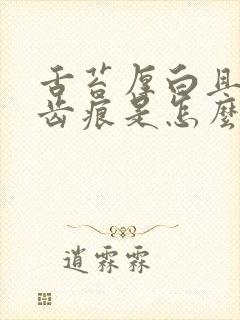 舌苔厚白且
齿痕是怎麽
逍霖霖